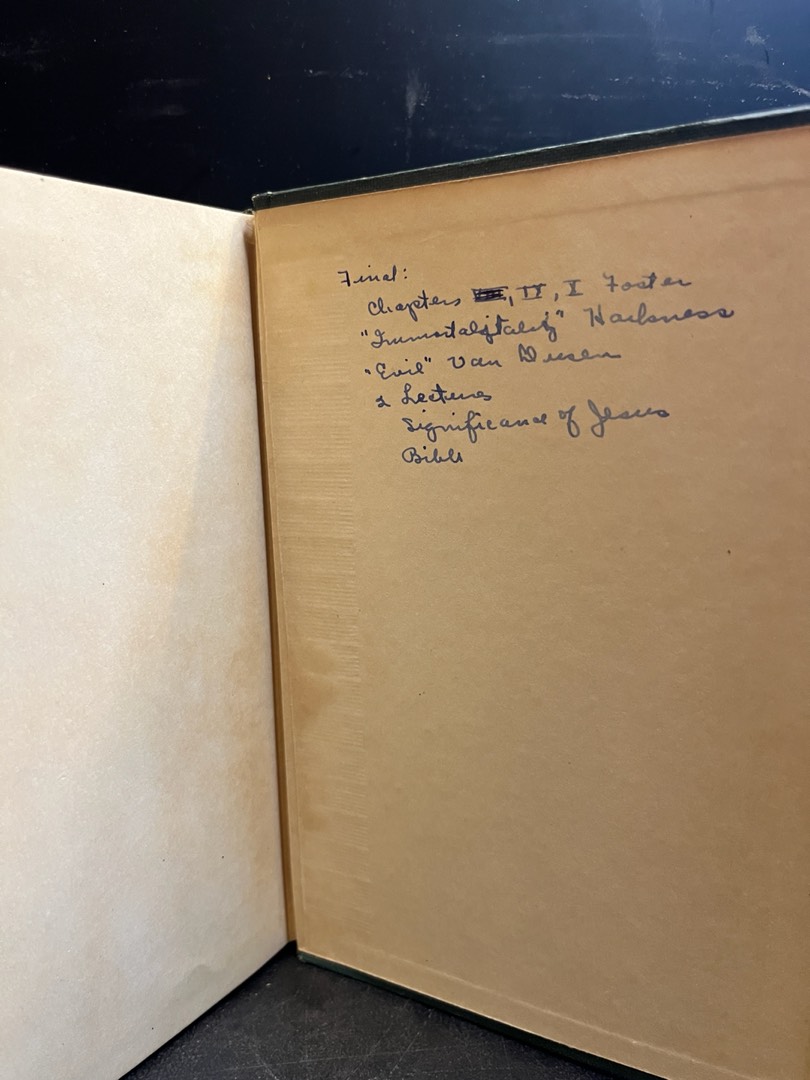 Final:
Chapters , IV, V Foster
"Immortality" Harkness
"Evil" Van Dusen
2 Lectures
Significance of Jesus
Bible